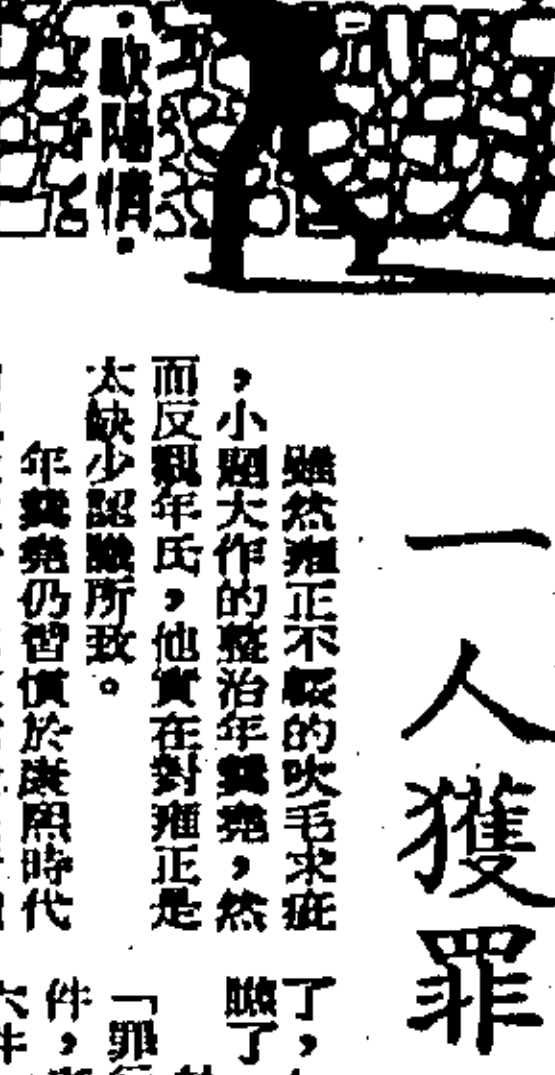 一人獲罪
·歐陽情·
雖然雍正不輟的吹毛求疵
，小題大作的整治年羹堯，然
而反觀年氏，他實在對雍正是
太缺少認識所致。
年羹堯仍習慣於康熙時代
了，
瞰了
「罪
件，